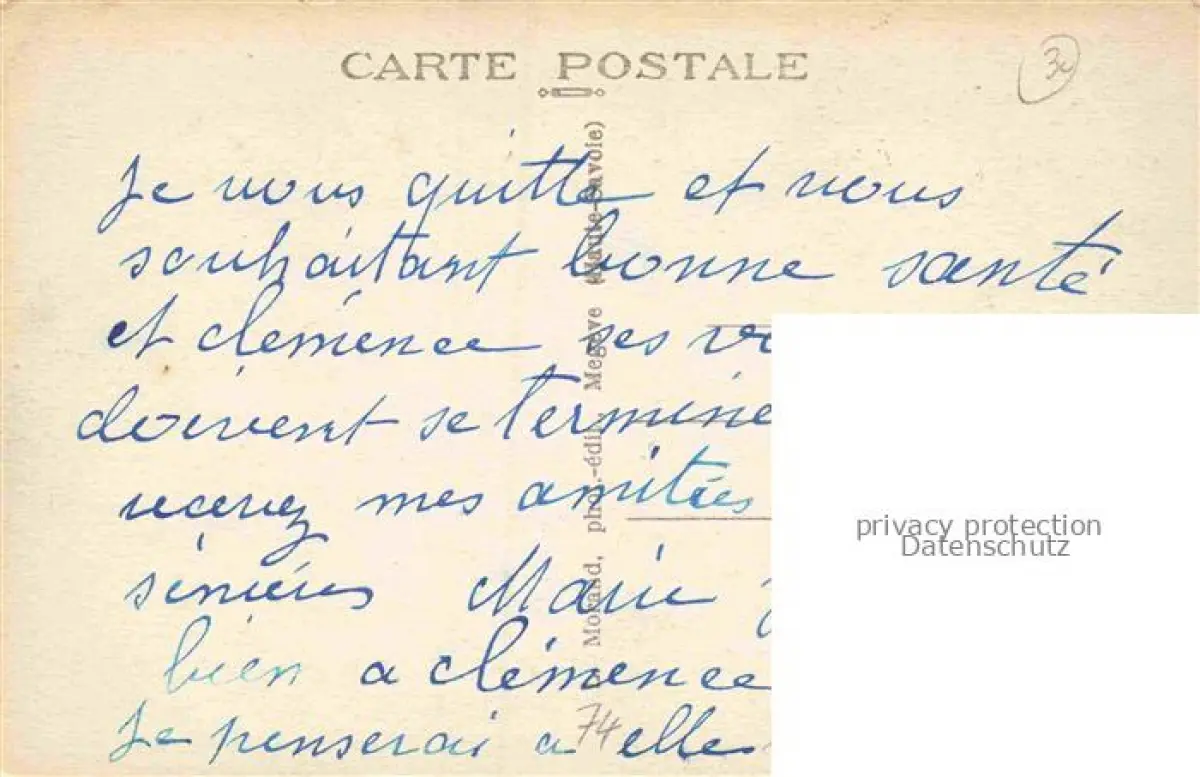 CARTE POSTALE
3c
Je vous quitte et vous
souhaitant bonne santé
et clémence ses
doivent se termine
recevez mes amitiées
sincères Marie
bien a clémence
Je penserai a elle
74
Morand, phot.-édit., Megève (Haute-Savoie)
privacy protection
Datenschutz